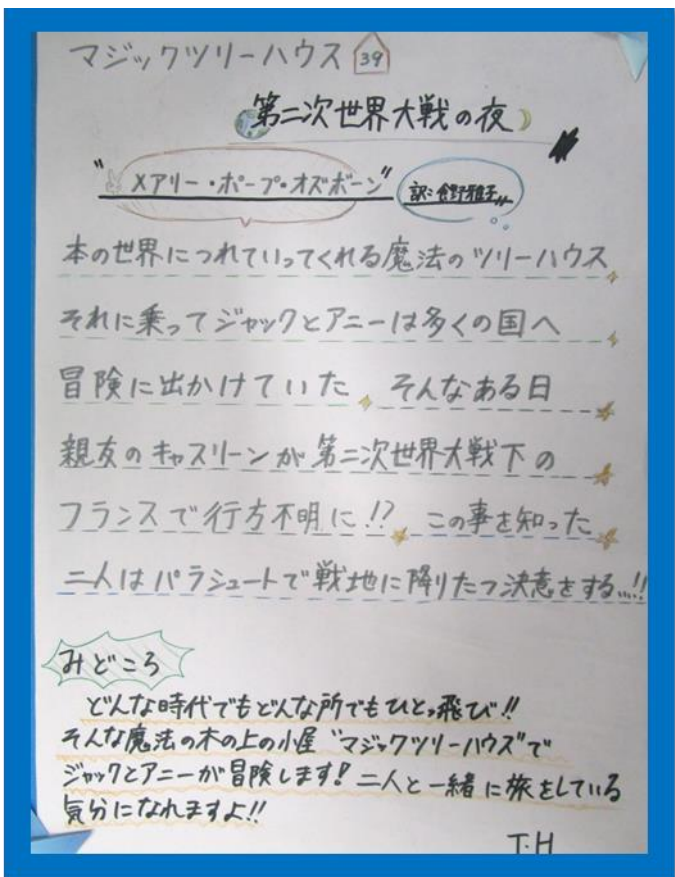 マジックツリーハウス 39
第二次世界大戦の夜
"メアリー・ポープ・オズボーン" 訳:食野雅子
本の世界につれていってくれる魔法のツリーハウス
それに乗ってジャックとアニーは多くの国へ
冒険に出かけていた そんなある日
親友のキャスリーンが第二次世界大戦下の
フランスで行方不明に!? この事を知った
二人はパラシュートで戦地に降りたつ決意をする...!!
みどころ
どんな時代でもどんな所でもひとっ飛び!!
そんな魔法の木の上の小屋"マジックツリーハウス"で
ジャックとアニーが冒険します! 二人と一緒に旅をしている
気分になれますよ!!
T.H